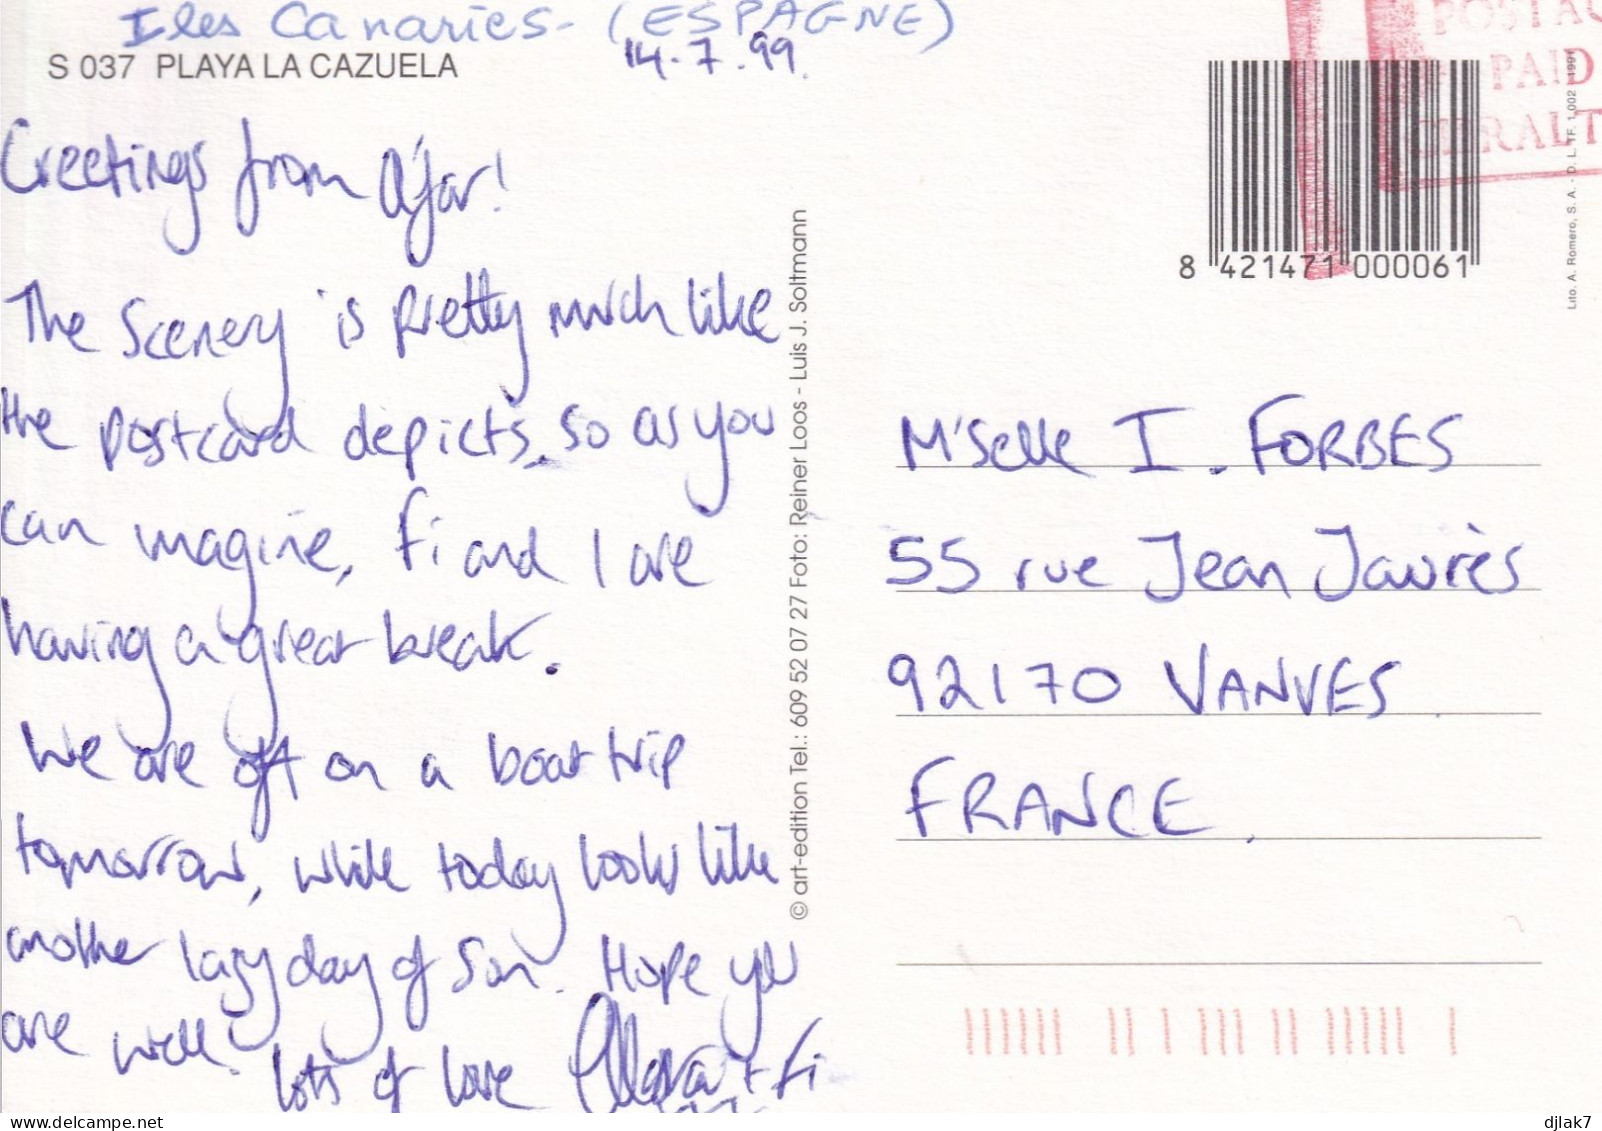 Iles Canaries - (ESPAGNE)
S 037 PLAYA LA CAZUELA
14.7.99.
Greetings from
The Scenery is pretty much like
the postcard depicts, so as you
can imagine, Fi and I are
having a great break.
We are off on a boat trip
tomorrow, while today looks like
another lazy day of sun. Hope you
are well.
lots of love + Fi
© art-edition Tel.: 609 52 07 27 Foto: Reiner Loos - Luis J. Soltmann
POSTAG
PAID
8 421471 000061
Lito. A. Romero, S. A. - D. L. TF. 1.002
M'Selle I. FORBES
55 rue Jean Jaurès
92170 VANVES
FRANCE.
djlak7